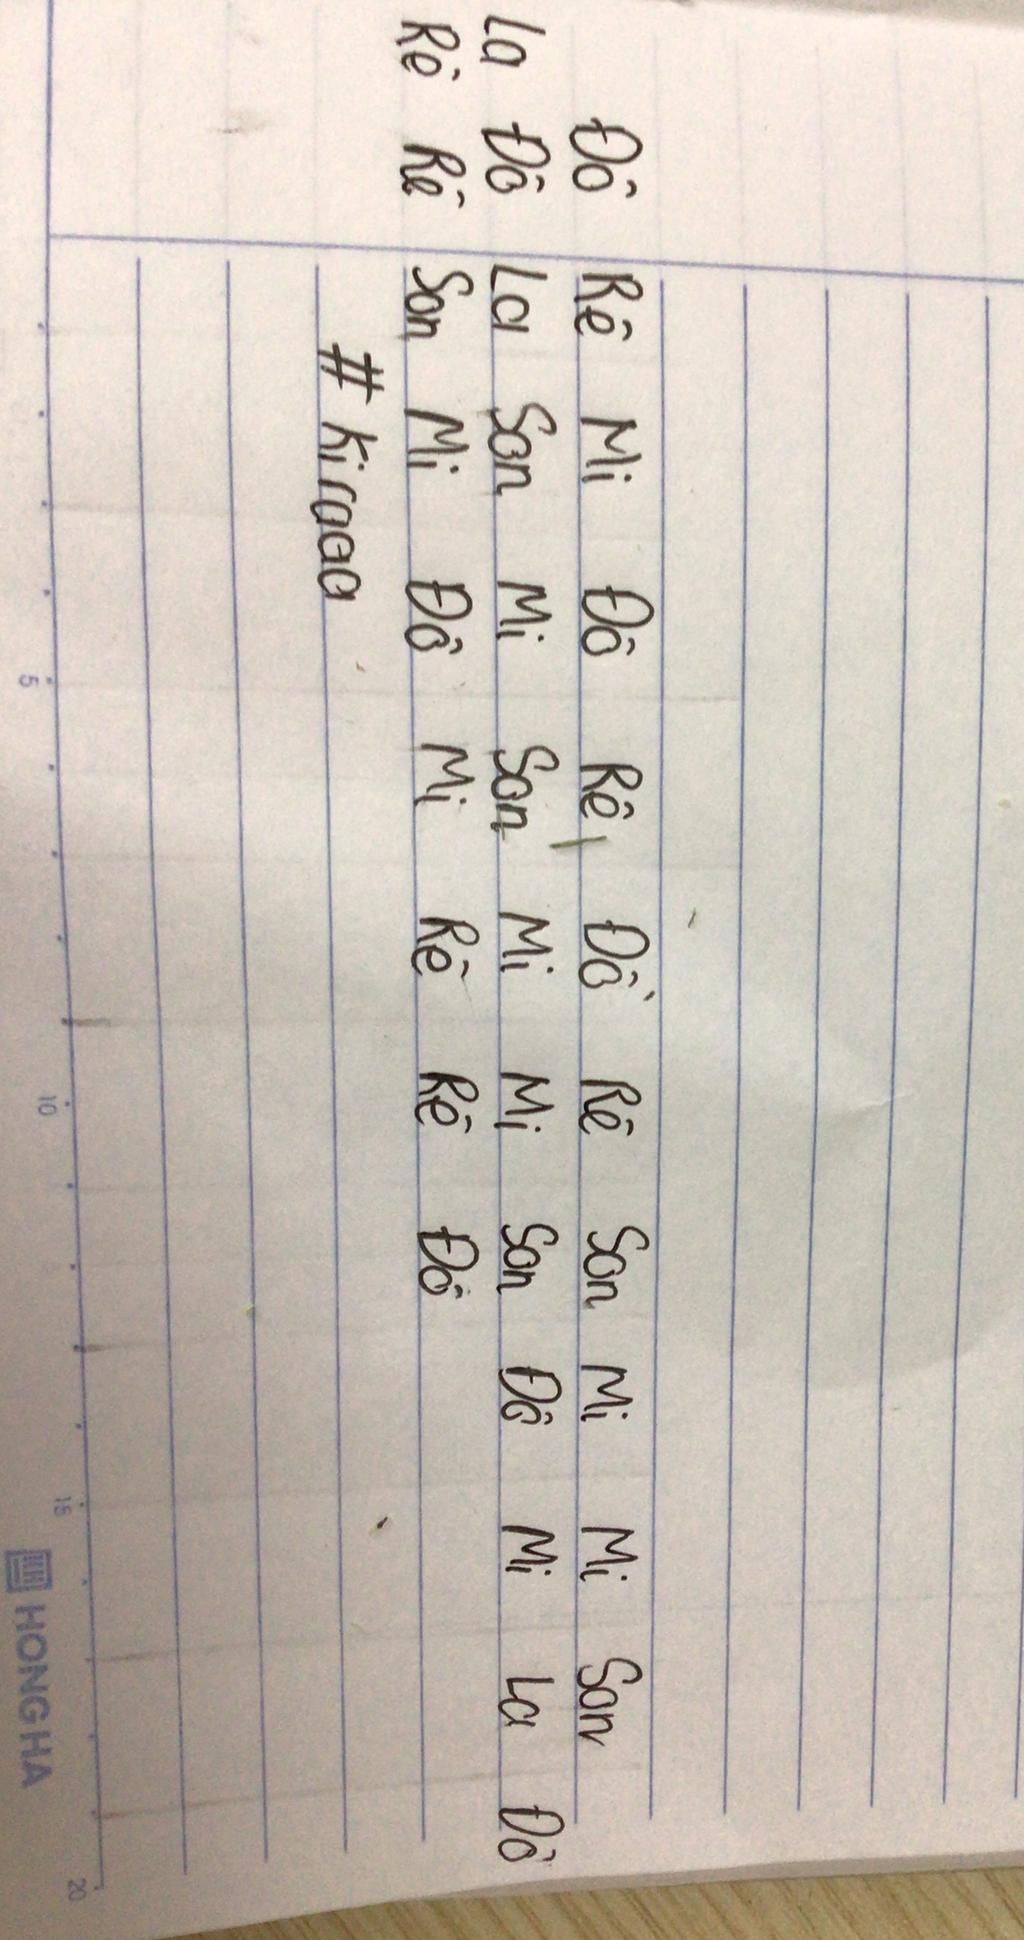 Đô Rê Mi Đô Rê Đô Rê Son Mi Mi Son
La Đô La Son Mi Son Mi Mi Son Đô Mi La Đô
Rê Rê Son Mi Đô Mi Rê Rê Đô
# Kiraaa
5 10 15 20
HONG HA